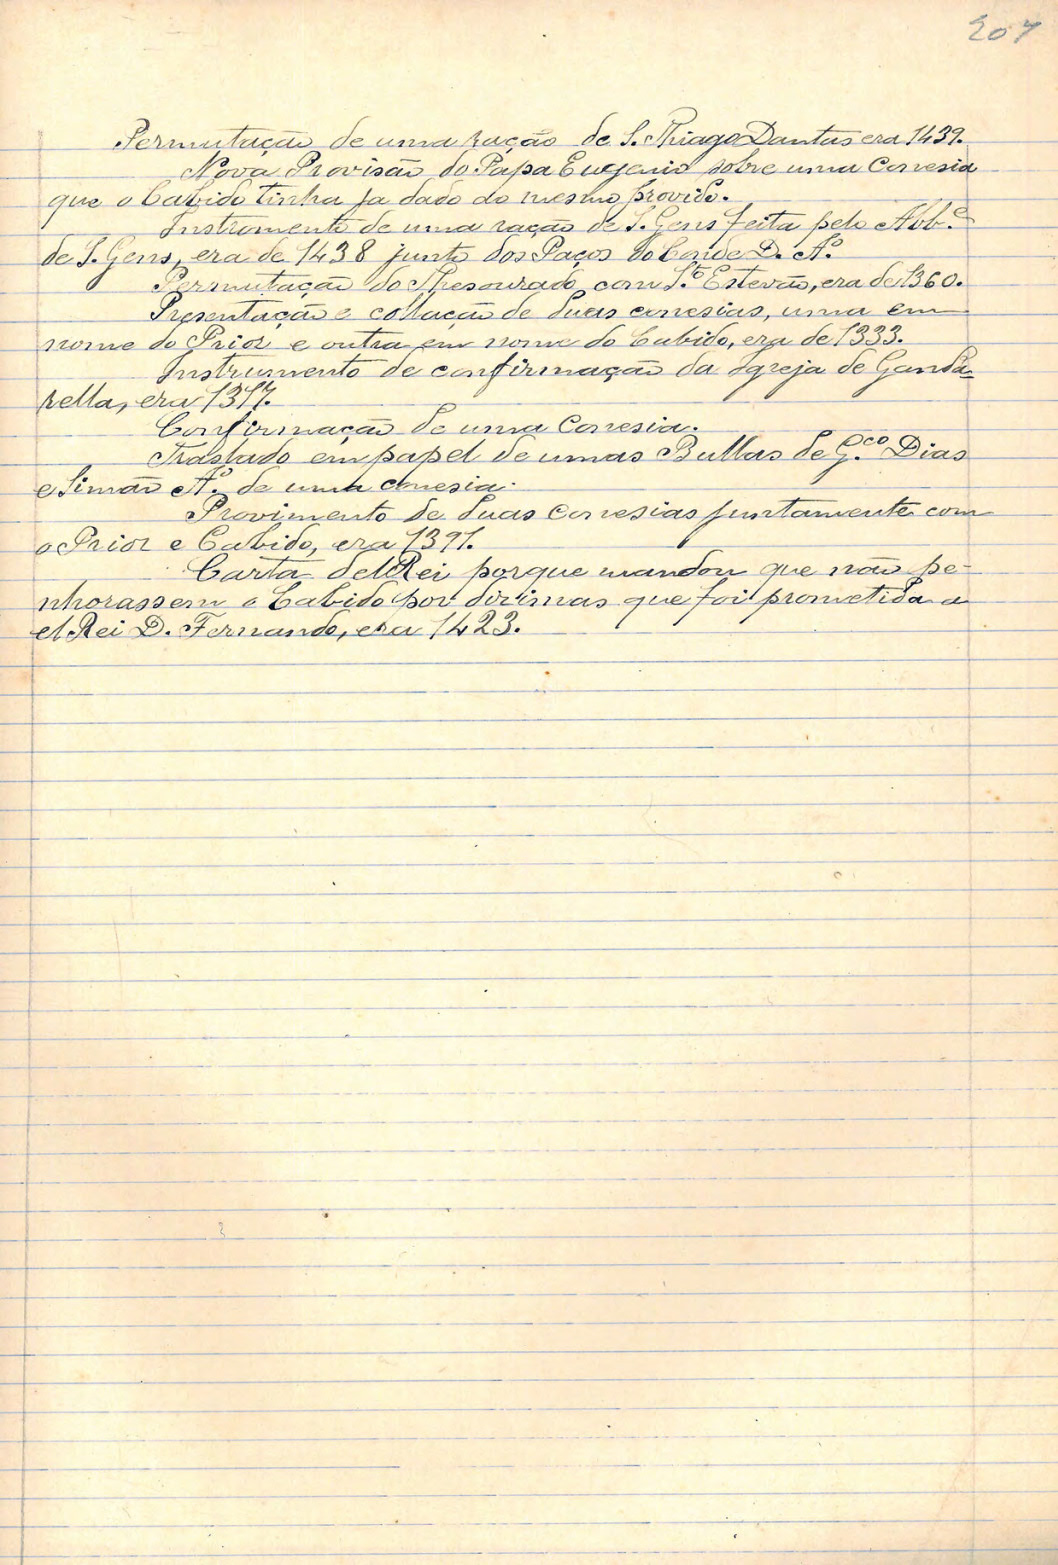 207
Permutação de uma ração de S. Thiago Dantas era 1439.
Nova Provisão do Papa Eugenio sobre uma conesia
que o Cabido tinha ja dado ao mesmo provido.
Instromento de uma ração de S. Gens feita pelo Abb.e
de S. Gens, era de 1438 junto dos Paços do Conde D. A.º
Permutação do Thesourado com S.to Estevão, era de 1360.
Presentação e collação de duas conesias, uma em
nome do Prior e outra em nome do Cabido, era de 1333.
Instrumento de confirmação da Igreja de Ganda-
rella, era 1317.
Confirmação de uma conesia.
Traslado em papel de umas Bullas de G.co Dias
e Simão A.º de uma conesia.
Provimento de duas conesias juntamente com
o Prior e Cabido, era 1391.
Carta delRei porque mandou que não pe-
nhorassem o Cabido por dizimas que foi prometida a
el Rei D. Fernando, era 1423.